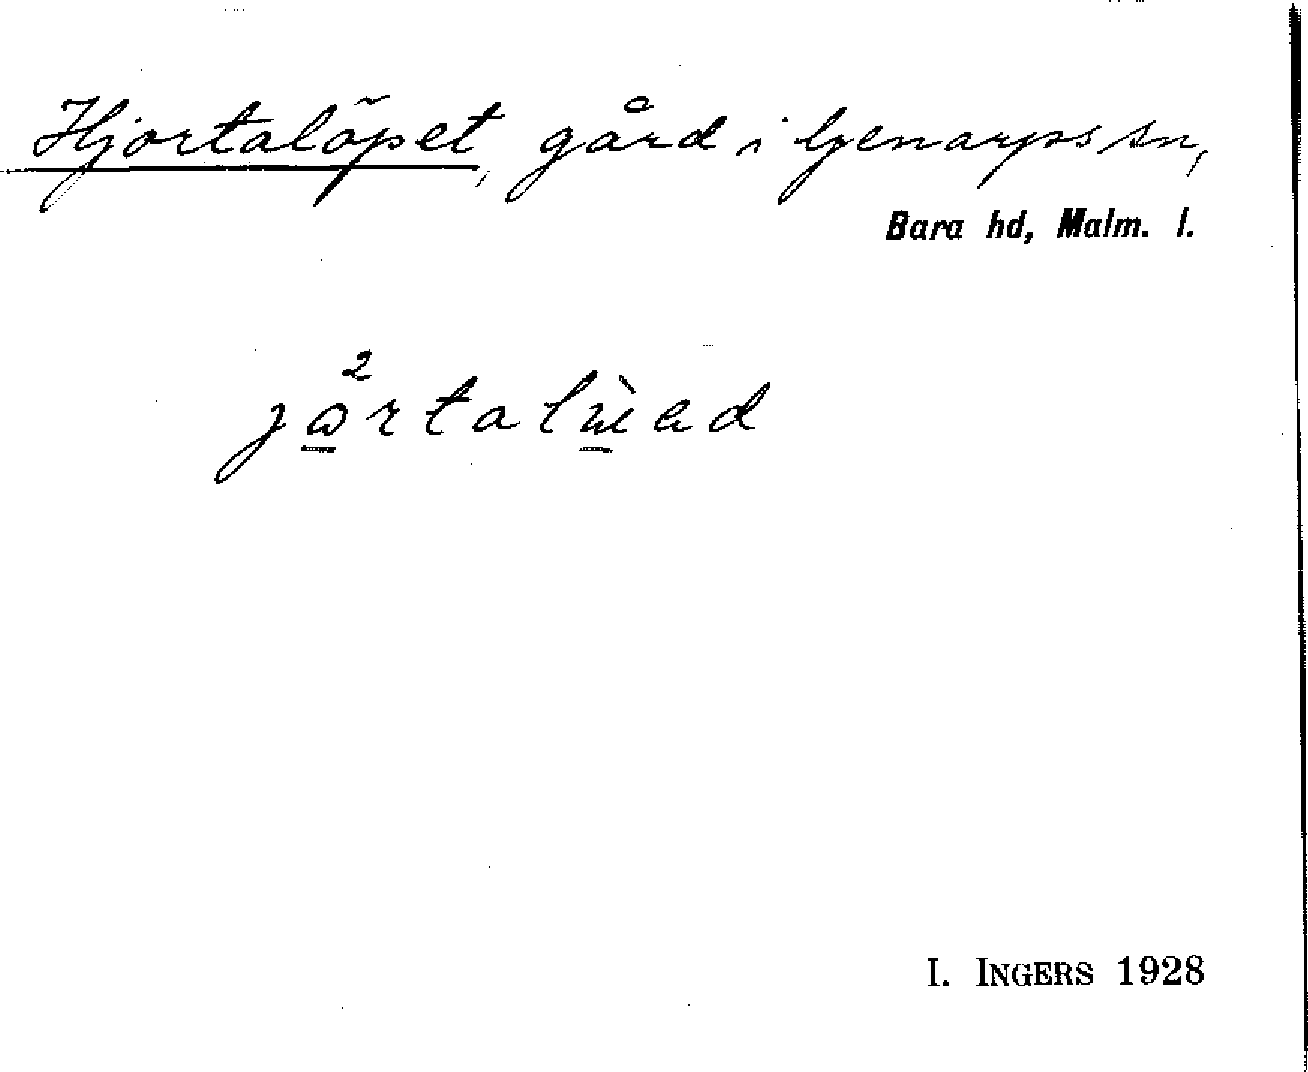 Hjortalöpet, gård i Genarps sn,
Bara hd, Malm. l.
I. INGERS 1928